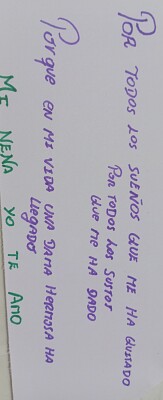 Por todos los sueños que me ha quitado
Por todos los sustos
que me ha dado
Porque en mi vida una dama hermosa ha
llegado
Mi nena yo te amo